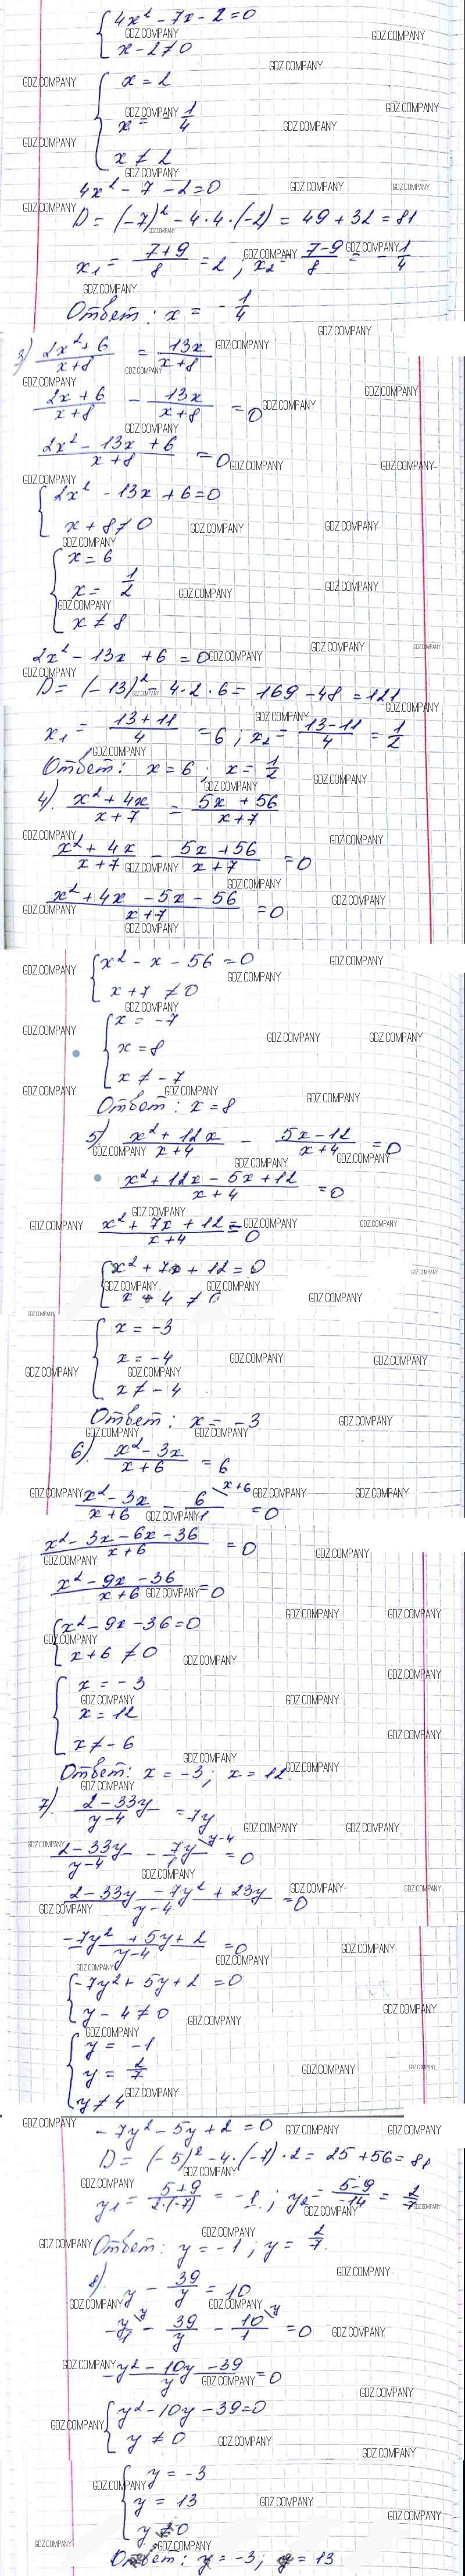 4x² - 7x - 2 = 0
x - 2 ≠ 0
x = 2
x = - 1/4
x ≠ 2
4x² - 7 - 2 = 0
D = (-7)² - 4·4·(-2) = 49 + 32 = 81
x₁ = (7+9)/8 = 2 ; x₂ = (7-9)/8 = - 1/4
Ответ: x = - 1/4
3) (2x² + 6)/(x+8) = 13x/(x+8)
(2x + 6)/(x+8) - 13x/(x+8) = 0
(2x² - 13x + 6)/(x+8) = 0
2x² - 13x + 6 = 0
x + 8 ≠ 0
x = 6
x = 1/2
x ≠ 8
2x² - 13x + 6 = 0
D = (-13)² - 4·2·6 = 169 - 48 = 121
x₁ = (13+11)/4 = 6 ; x₂ = (13-11)/4 = 1/2
Ответ: x = 6 ; x = 1/2
4) (x² + 4x)/(x+7) = (5x + 56)/(x+7)
(x² + 4x)/(x+7) - (5x + 56)/(x+7) = 0
(x² + 4x - 5x - 56)/(x+7) = 0
x² - x - 56 = 0
x + 7 ≠ 0
x = -7
x = 8
x ≠ -7
Ответ: x = 8
5) (x² + 12x)/(x+4) - (5x - 12)/(x+4) = 0
(x² + 12x - 5x + 12)/(x+4) = 0
(x² + 7x + 12)/(x+4) = 0
x² + 7x + 12 = 0
x + 4 ≠ 0
x = -3
x = -4
x ≠ -4
Ответ: x = -3
6) (x² - 3x)/(x+6) = 6
(x² - 3x)/(x+6) - 6/1 \x+6 = 0
(x² - 3x - 6x - 36)/(x+6) = 0
(x² - 9x - 36)/(x+6) = 0
x² - 9x - 36 = 0
x + 6 ≠ 0
x = -3
x = 12
x ≠ -6
Ответ: x = -3 ; x = 12.
7) (2 - 33y)/(y-4) = 7y
(2 - 33y)/(y-4) - 7y/1 \y-4 = 0
(2 - 33y - 7y² + 23y)/(y-4) = 0
(-7y² + 5y + 2)/(y-4) = 0
-7y² + 5y + 2 = 0
y - 4 ≠ 0
y = -1
y = 2/7
y ≠ 4
-7y² - 5y + 2 = 0
D = (-5)² - 4·(-7)·2 = 25 + 56 = 81
y₁ = (5+9)/(2·(-7)) = -1 ; y₂ = (5-9)/(-14) = 2/7
Ответ: y = -1 ; y = 2/7.
8) y - 39/y = 10
y/1 \y - 39/y - 10/1 \y = 0
(y² - 10y - 39)/y = 0
y² - 10y - 39 = 0
y ≠ 0
y = -3
y = 13
y ≠ 0
Ответ: y = -3; y = 13
GDZ.COMPANY